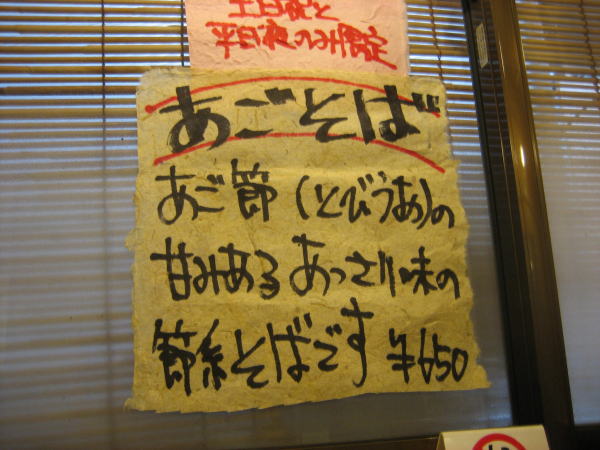 土日祝と
平日夜のみ限定
あごそば
あご節(とびうお)の
甘みある あっさり味の
節系そばです ¥650